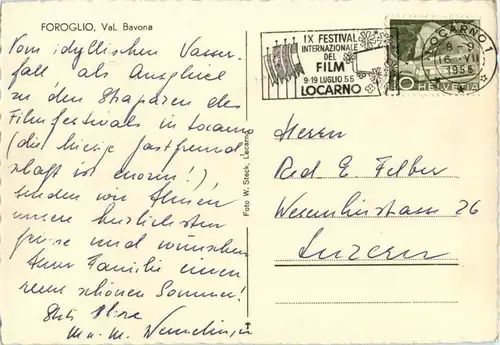 FOROGLIO, Val Bavona
Vom idyllischen Wasser-
fall als Ausgleich
zu den Strapazen des
Filmfestivals in Locarno
(die hiesige Gastfreund
schaft ist enorm!),
senden wir Ihnen
unsere herzlichsten
Grüsse und wünschen
Ihrer Familie einen
recht schönen Sommer!
Stets Ihre
M. u. M.
Foto W. Steck, Locarno
IX FESTIVAL
INTERNAZIONALE
DEL
FILM
9-19 LUGLIO 55
LOCARNO
LOCARNO 1
8-9
16.VII
1955
10 HELVETIA
Herrn
Red E. Felber
26
Luzern